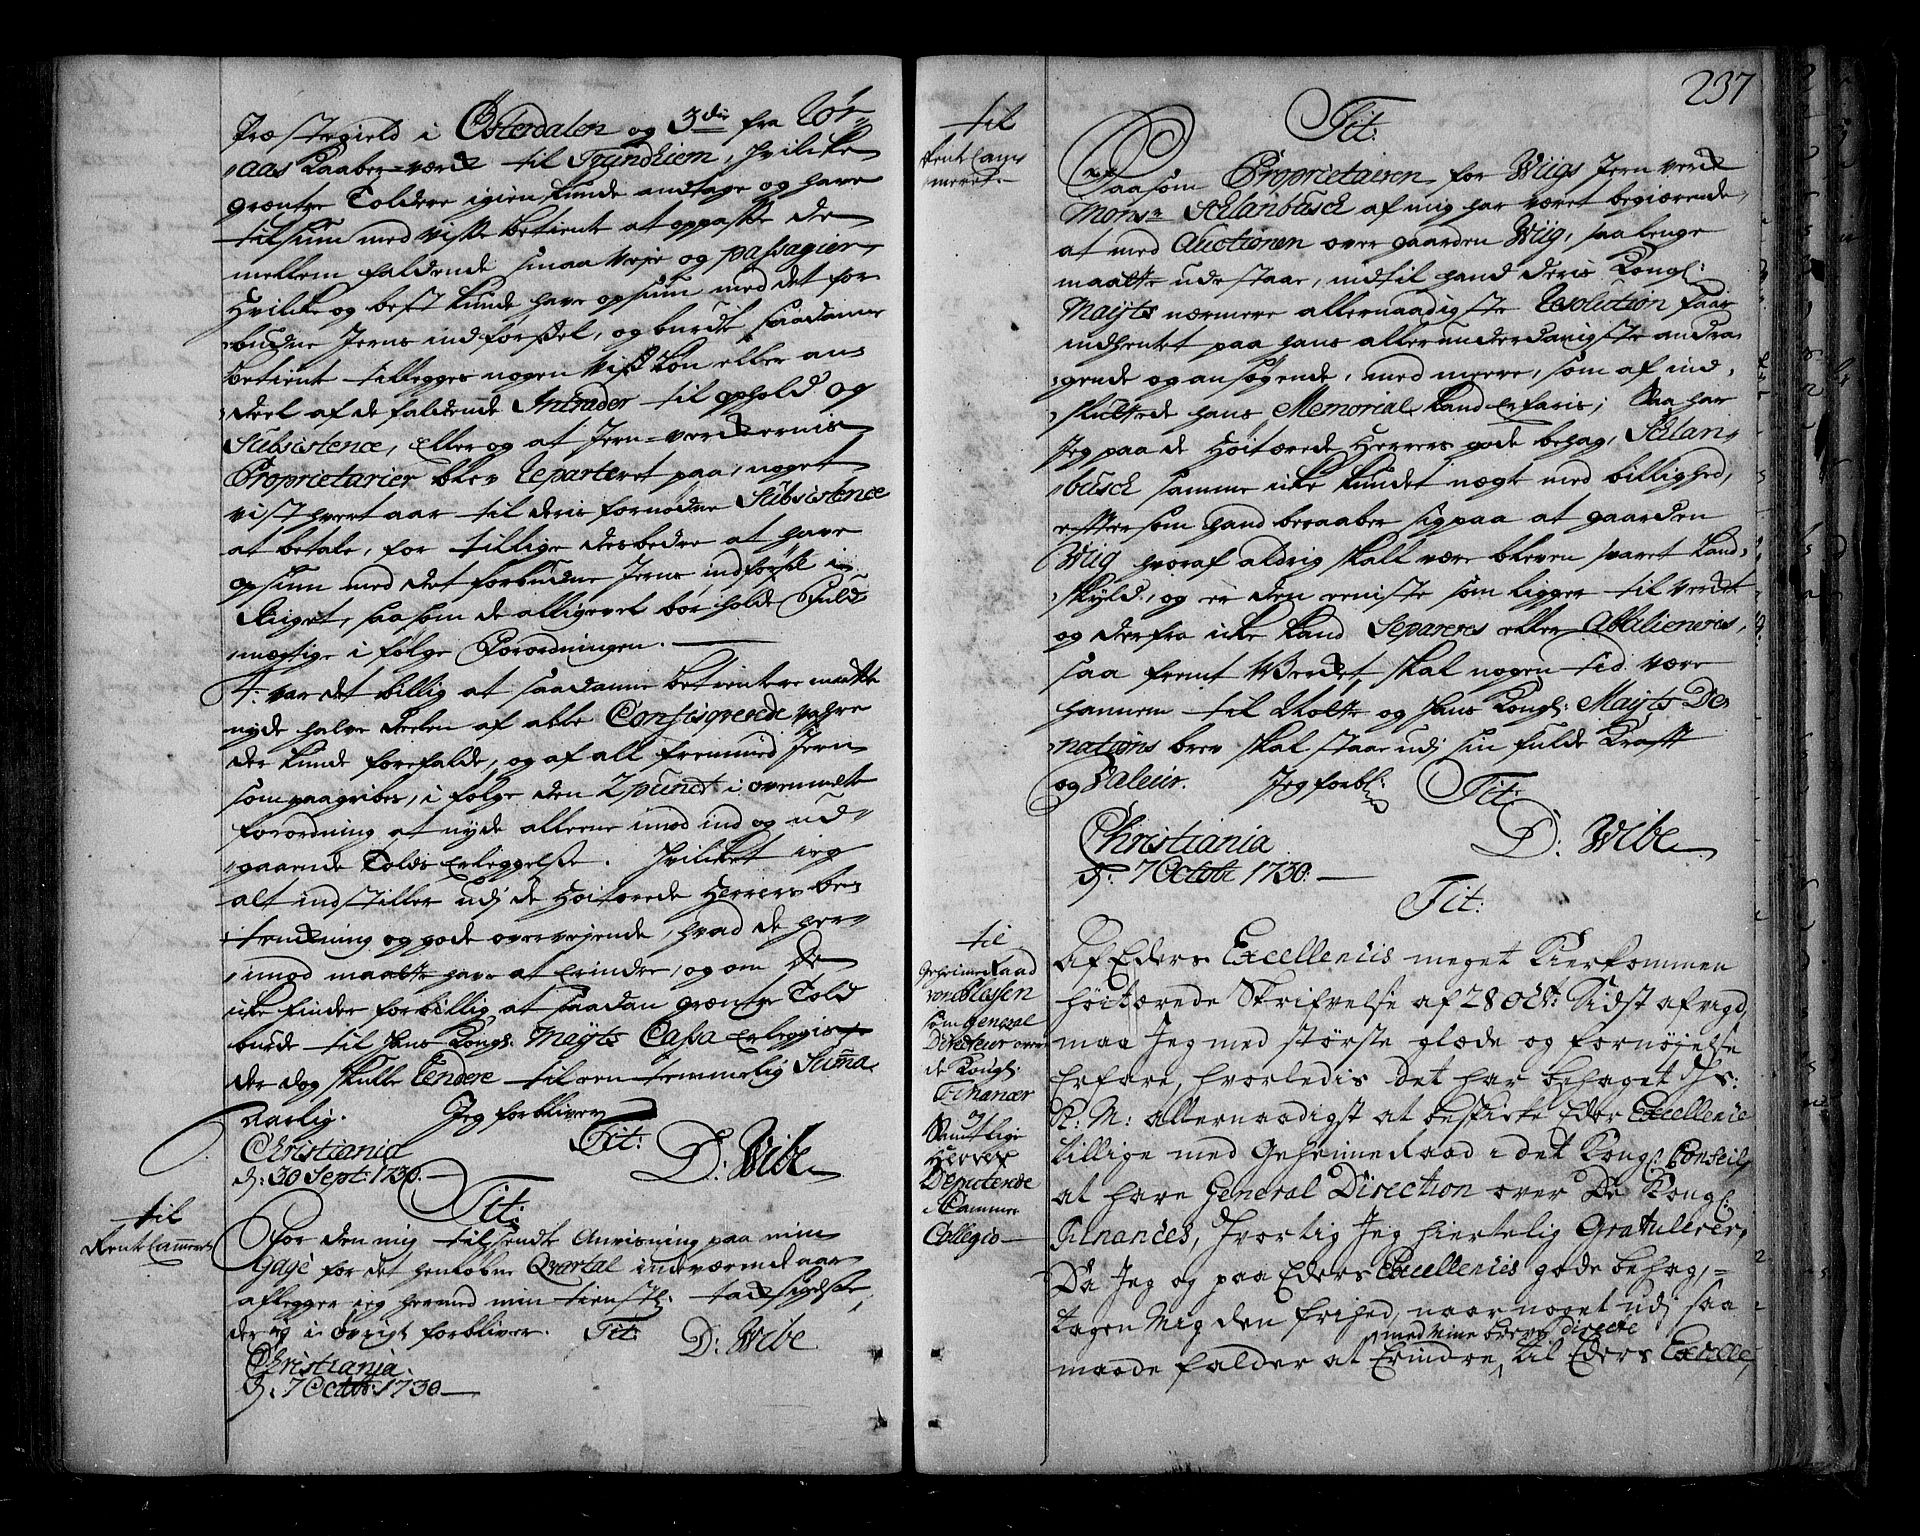 Præstegield i Østerdalen og 3die fra Rør-
aas Kaaber-værck til Trundhiem, hvilcke
græntze Toldere igien kunde andtage og have
tilsiun med visse betiente at oppasse de
mellem faldende smaa veje og passagier,
Hvilke og best kunde have opsiun med det for
budne Jerns indførsel, og burde saadanne
betiente tillegges nogen viss Løn eller an
deel af de faldende Intrader til ophold og
Subsistence, eller og at Jern-verckernis
Proprietarier blev reparteret paa, noget
vist hvert aar til deris fornødne Subsistence
at betale, for tillige desbedre at have
opsiun med det forbudne Jerns indførsel i
Riiget, saasom de alligevel bør holde Fuld-
mægtige i følge Forordningen.
4. var det billig at saadanne betientere maatte
nyde halve deelen af alle Confisqverede vahre
der kunde forefalde, og af all fremmed Jern
som paagribes, i følge den 2 punct i ovenmelte
forordning at nyde alleene imod ind og ud-
gaaende Tolds Erleggelse. Hvilcket jeg
alt indstiller udj de Høitærede Herrers be-
tenckning og gode overvejende, hvad de her-
imod maatte have at Erindre, og om De
icke finder forbillig at saadan græntze Told
burde til Hans Kongl: Mayts Cassa Erleggis
der dog skulle rendere til een temmelig Suma
Aarlig. Jeg forbliver
Tit: D: Wibe
Christiania
d: 30 Sept: 1730.
til
RentCammeret
Tit:
For den mig tilsendte Anvisning paa min
Gage for det henløbne Qvartal indeværende aar
aflegger jeg hermed min tienstl: tacksigelse,
der jeg i øvrigt forbliver. Tit: D: Wibe
Christiania
d: 7 Octobr: 1730
237
til
RentCam
meret
Tit:
Saasom Proprietairen for Wiigs Jernverck
Monsr Schlanbusch af mig har været begiærende,
at med Auctionen over gaarden Wiig, saa lenge
maatte udestaae, indtil hand deris Kongl:
Mayts nærmere allernaadigste Resolution faaer
indhentet paa hans allerunderdanigste andra-
gende og ansøgende, med meere, som af ind-
sluttede hans Memorial kand Erfaris; Saa har
Jeg paa de Høitærede Herrers gode behag, Schlan-
busch samme icke kundet nægte med billighed,
eftersom hand beraaber sig paa at gaarden
Wiig hvoraf aldrig skall være bleven svaret Land-
skyld, og er den eeniste som ligger til vercket
og derfra icke kand Separeres eller Abalieneris,
saa fremt Vercket skal nogen tid være
hannem til Nötte og Hans Kongl: Mayts Do-
nations brev skal staae udj sin fulde Krafft
og Valeur. Jeg forbl: Tit:
D: Wibe
Christiania
d: 7 Octobr 1730.
til
Geheimeraad
von Plessen
som General
Directeur over
de Kongl:
Financer
og
Samtlige
Herrer
Deputerede
i Cammer
Collegio
Tit:
Af Eders Excellencis meget Kierkommen
høitærede Skrifvelse af 28 Octr: Sidst afvigt,
maa Jeg med største glæde og fornøjelse
Erfare, hvorledis det har behaget Hs:
K: M: allernaadigst at beskicke Eder Excellence
tillige med Geheimeraad i det Kongl: Conseil,
at have General Direction over De Kongl:
Finances, hvortil Jeg hiertelig Gratulerer,
Da Jeg og paa Eders Excellencis gode behag,
tagen Mig den frihed, naar noget udj saa
med Mine breve directe
maade falder at Erindre, til Eders Excelle,